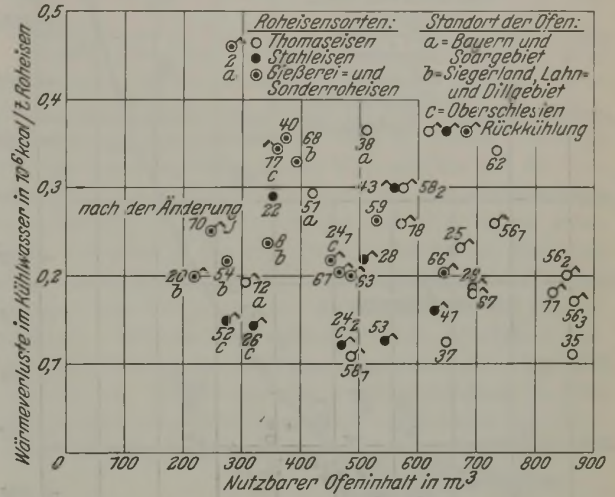 Wärmeverluste im Kühlwasser in 10⁶kcal/t Roheisen
0,5
0,4
0,3
0,2
0,1
0
Roheisensorten:
○ Thomaseisen
● Stahleisen
⊙ Gießerei= und
Sonderroheisen
Standort der Öfen:
a = Bayern und
Saargebiet
b = Siegerland, Lahn=
und Dillgebiet
c = Oberschlesien
Rückkühlung
2
a
40
68
b
77
c
38
a
62
43
58₂
22
51
a
59
78
56₁
nach der Änderung
70
8
b
24₁
c
28
25
20
b
54
b
72
a
61
63
66
29
67
56₂
77
56₃
52
c
26
c
24₂
c
58₁
53
41
37
35
0 100 200 300 400 500 600 700 800 900
Nutzbarer Ofeninhalt in m³